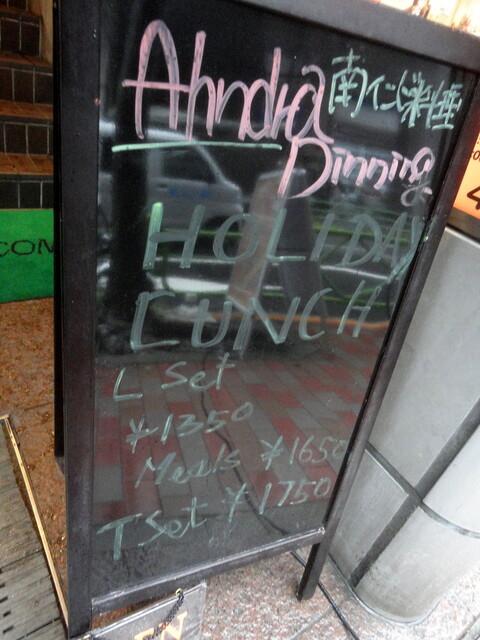 Ahndra 南インド料理
Dinning
HOLIDAY
LUNCH
L Set
¥1350
Meals ¥1650
T Set ¥1750
COM
4
W